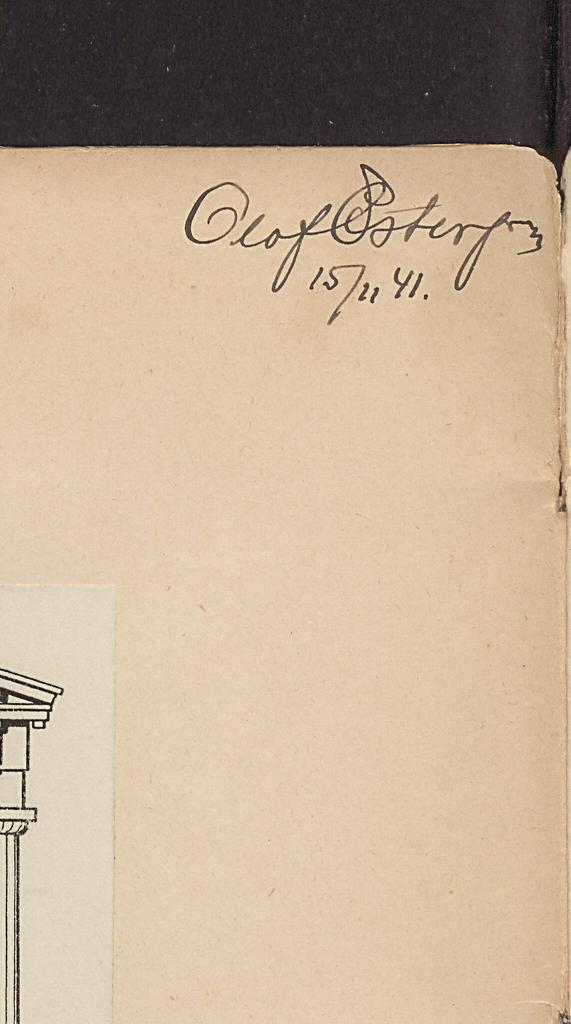 Olof Östergren
15/11 41.